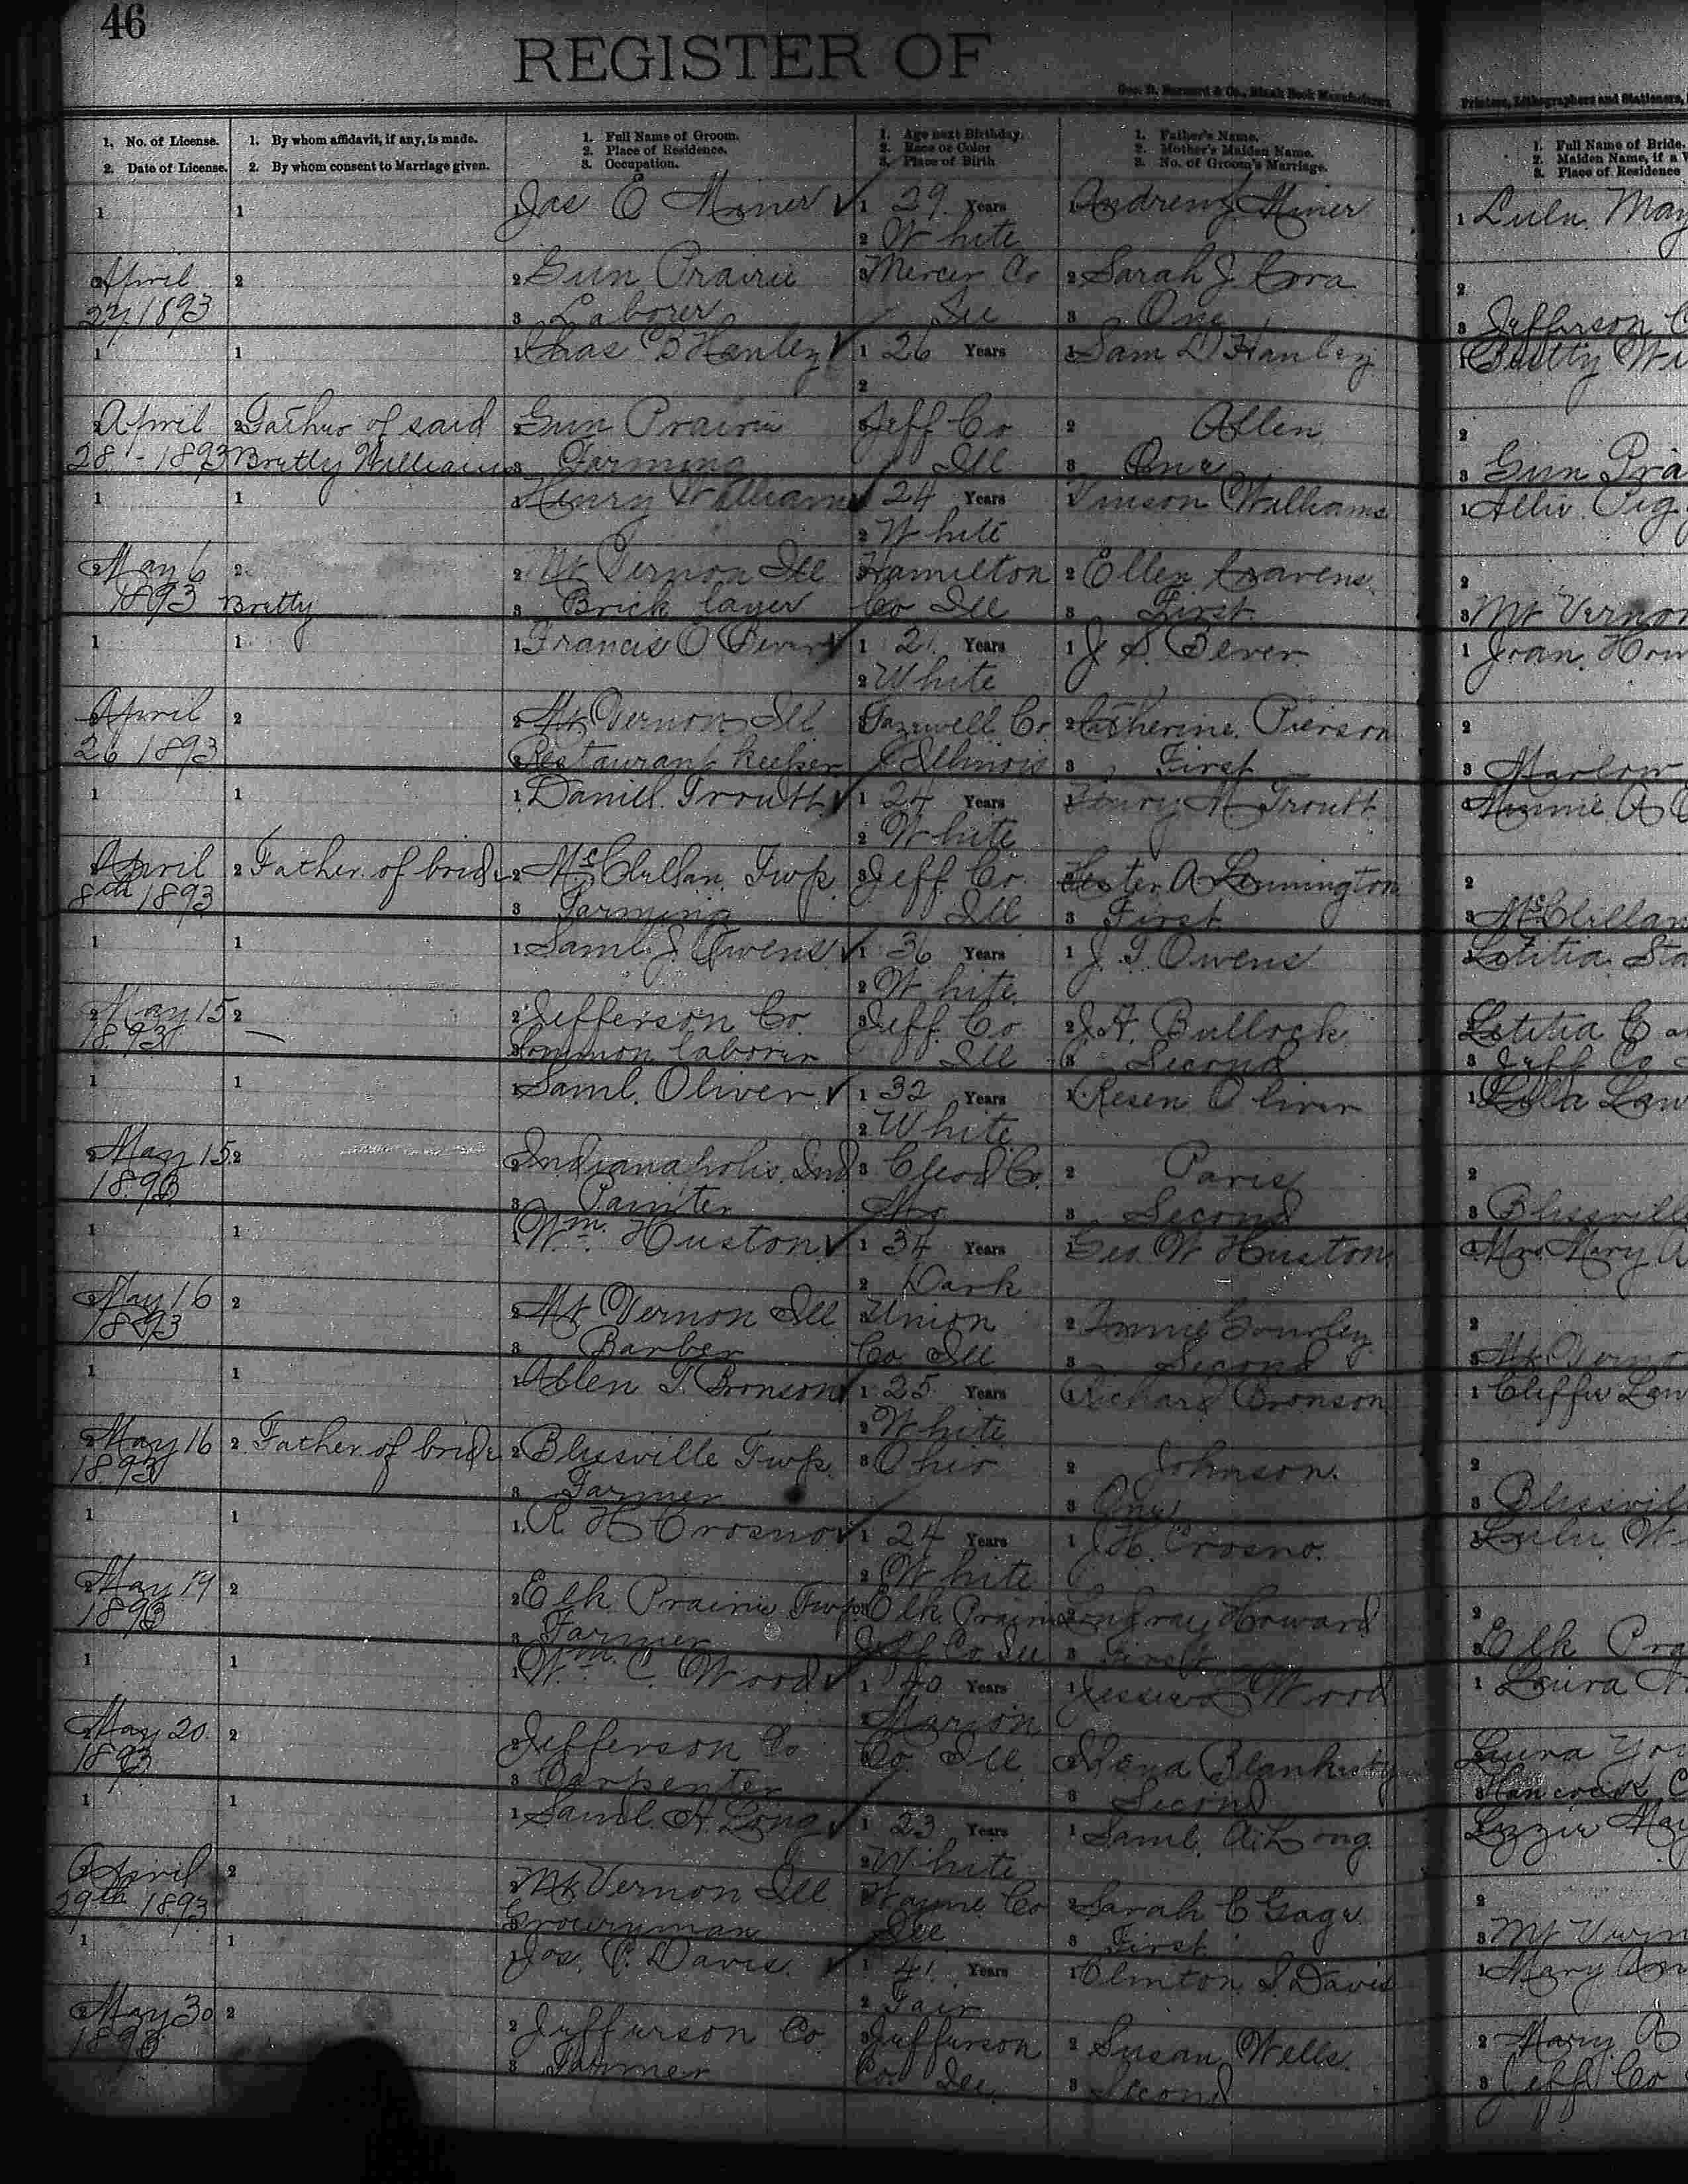 46
REGISTER OF
Geo. D. Barnard & Co., Blank Book Manufacturers,
Printers, Lithographers and Stationers,
1. No. of License.
2. Date of License.
1. By whom affidavit, if any, is made.
2. By whom consent to Marriage given.
1. Full Name of Groom.
2. Place of Residence.
3. Occupation.
1. Age next Birthday.
2. Race or Color
3. Place of Birth
1. Father's Name.
2. Mother's Maiden Name.
3. No. of Groom's Marriage.
1. Full Name of Bride.
2. Maiden Name, if a W
3. Place of Residence
1 1 1 Jas E Miner 1 29 Years 1 Andrew J. Miner 1 Lulu May
2 White
2 April 2 2 Gun Prairie 3 Mercer Co 2 Sarah J. 2
27 1893 3 Laborer Ill 3 One 3 Jefferson C
1 1 1 Chas B Hanley 1 26 Years 1 Sam D Hanley 1 Bretty Wi
2
2 April 2 Father of said 2 Gun Prairie 3 Jeff Co 2 Allen 2
28 - 1893 Bretty Williams 3 Farming Ill 3 One 3 Gun Pra
1 1 1 Henry Williams 24 Years 1 Vinson Williams 1 Allie Pig
2 White
2 May 6 2 2 Mt Vernon Ill 3 Hamilton 2 Ellen Cravens 2
1893 Bretty 3 Brick layer Co Ill 3 First 3 Mt Vernon
1 1 1 Francis O Bever 1 21 Years 1 J S. Bever 1 Joan How
2 White
2 April 2 2 Mt Vernon Ill 3 Tazewell Co. 2 Catherine Pierson 2
26 1893 3 Restaurant keeper Illinois 3 First 3 Marlow
1 1 1 Daniel Troutt 1 24 Years 1 Henry M Troutt 1 Minnie A
2 White
2 April 2 Father of bride 2 McClellan Twp. 3 Jeff Co. 2 Hester A Lennington 2
8th 1893 3 Farming Ill 3 First 3 McClellan
1 1 1 Saml. J. Owens 1 36 Years 1 J. T. Owens 1 Letitia Sta
2 White
2 May 15 2 2 Jefferson Co. 3 Jeff. Co 2 J. A. Bullock 2 Letitia C
1893 — 3 Common laborer Ill 3 Second 3 Jeff Co
1 1 1 Saml. Oliver 1 32 Years 1 Resen Oliver 1 Lula Law
2 White
2 May 15 2 2 Indianapolis, Ind 3 Co. 2 Paris 2
1893 3 Painter Mo 3 Second 3 Blissville
1 1 1 Wm. Huston 1 34 Years 1 Geo. W Huston 1 Mrs. Mary A
2 Dark
2 May 16 2 2 Mt Vernon Ill 3 Union 2 2
1893 3 Barber Co Ill 3 Second 3 Mt. Verno
1 1 1 Allen T. Bronson 1 25 Years 1 Richard Bronson 1 Cliffie Law
2 White
2 May 16 2 Father of bride 2 Blissville Twp. 3 Ohio 2 Johnson. 2
1893 3 Farmer 3 One 3 Blissvil
1 1 1 R H Crosno 1 24 Years 1 J H. Crosno. 1 Lulu W
2 White
2 May 19 2 2 Elk Prairie Twp 3 Elk Prairie 2 Howard 2
1893 3 Farmer Jeff Co Ill 3 First 3 Elk Pra
1 1 1 Wm. C. Wood 1 40 Years 1 Wood 1 Laura
2 Marion
2 May 20 2 2 Jefferson Co Co. Ill 2 Laura You
1893 3 Carpenter 3 Second 3 Hancock C
1 1 1 Saml. A. Long 1 23 Years 1 Saml. A. Long 1 Lizzie May
2 White
2 April 2 2 Mt Vernon Ill Wayne Co 2 Sarah C Gage 2
29th 1893 3 Groceryman Ill 3 First 3 Mt Vern
1 1 1 Jos. P. Davis 1 41 Years 1 Clinton S. Davis 1 Mary Ann
2 Fair
2 May 30 2 2 Jefferson Co 3 Jefferson 2 Susan Wells. 2 Mary A
1893 3 Farmer Co Ill. 3 Second 3 Jeff Co